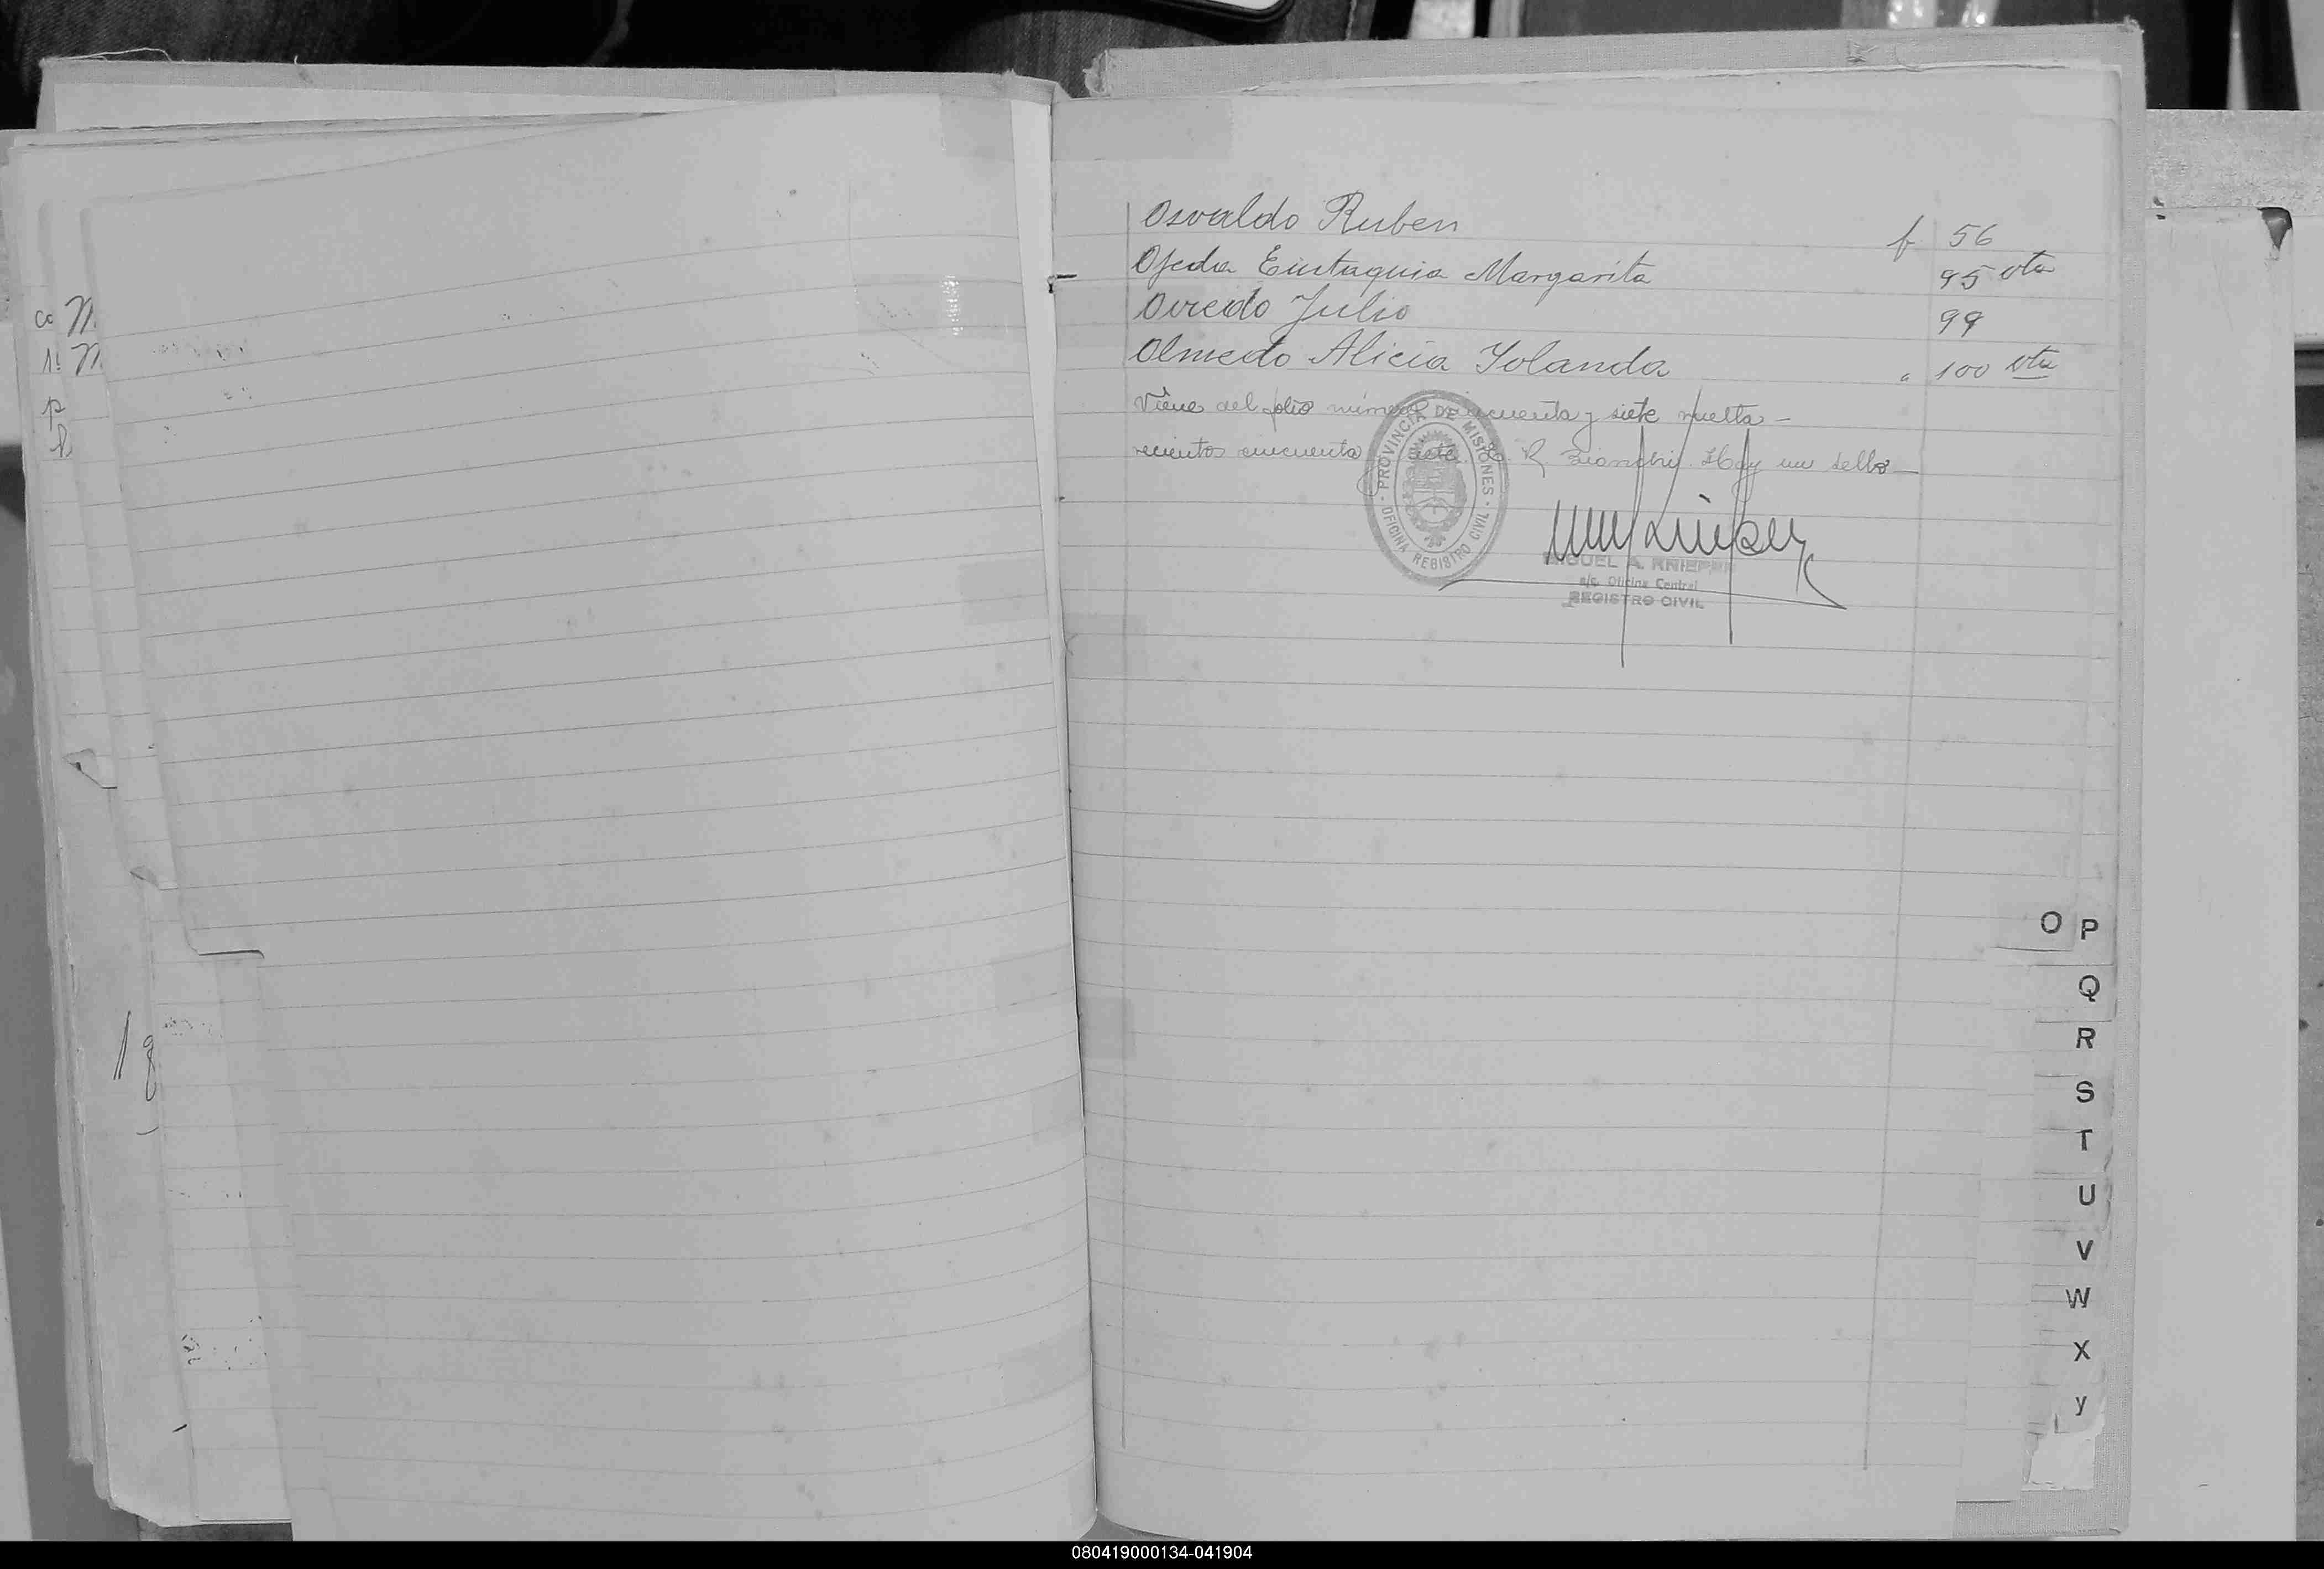 Osvaldo Ruben f 56
Ojeda Eustaquia Margarita 95 vta
Oviedo Julio 99
Olmedo Alicia Yolanda " 100 vta
Viene del folio número cincuenta y siete vuelta —
recientos cincuenta siete. Hay un sello —
PROVINCIA DE MISIONES
OFICINA REGISTRO CIVIL
MIGUEL A. KNIEPER
a/c. Oficina Central
REGISTRO CIVIL
O P
Q
R
S
T
U
V
W
X
y
080419000134-041904